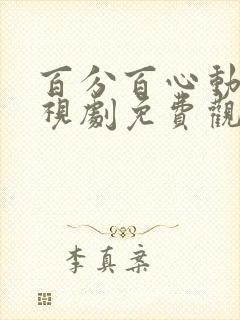 百分百心動
視劇免費觀
李真案